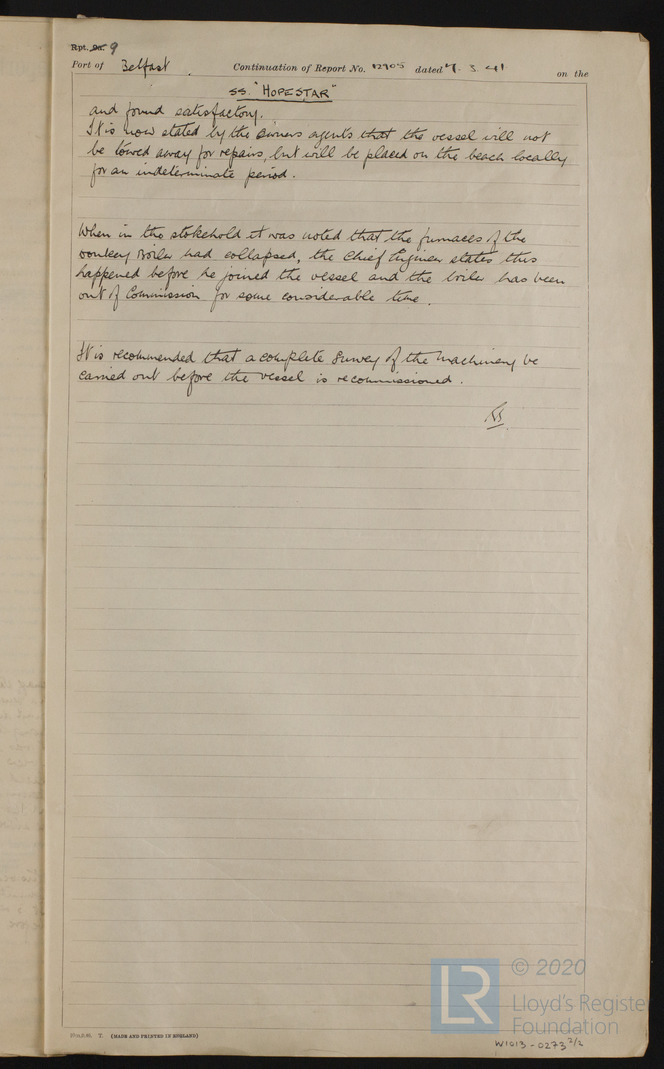 Rpt. No. 9
Port of Belfast. Continuation of Report No. 12905 dated 7. 3. 41 on the
SS. "HOPESTAR"
and found satisfactory.
It is now stated by the Owners agents that the vessel will not
be towed away for repairs, but will be placed on the beach locally
for an indeterminate period.
When in the stokehold it was noted that the furnaces of the
Donkey Boiler had collapsed, the Chief Engineer states this
happened before he joined the vessel and the boiler has been
out of Commission for some considerable time.
It is recommended that a complete Survey of the Machinery be
carried out before the vessel is recommissioned.
T. (MADE AND PRINTED IN ENGLAND)
LR
© 2020
Lloyd's Registe
Foundation
W1013-0273 2/2